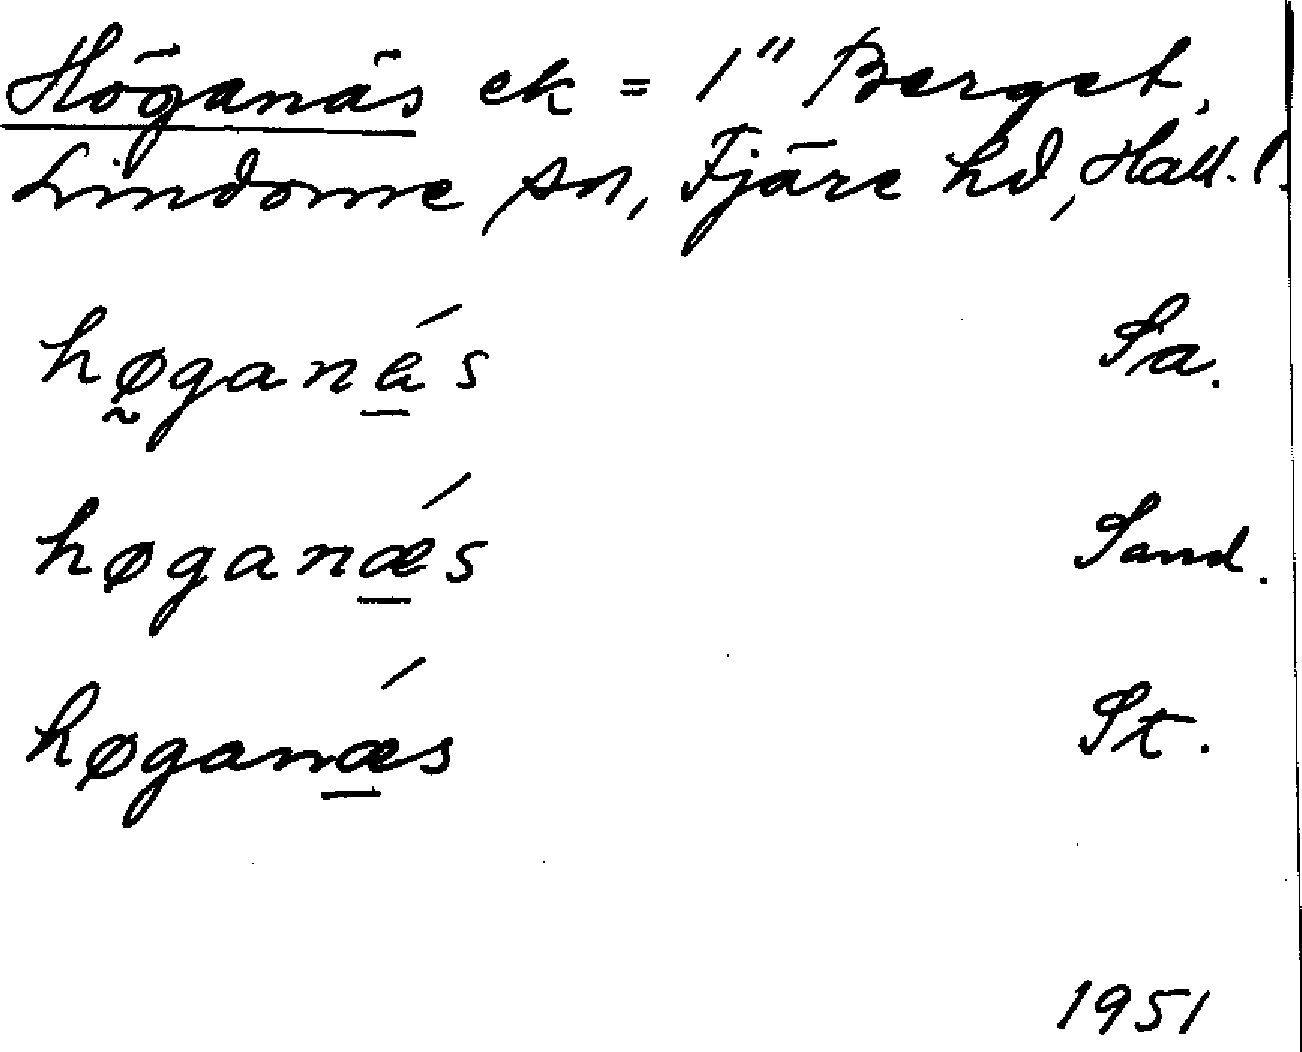 Höganäs ek = 1" Berget,
Lindome sn, Fjäre hd, Hall. l.
hø̰gana̲´s Sa.
høganæ̲´s Sand.
høganæ̲´s St.
1951